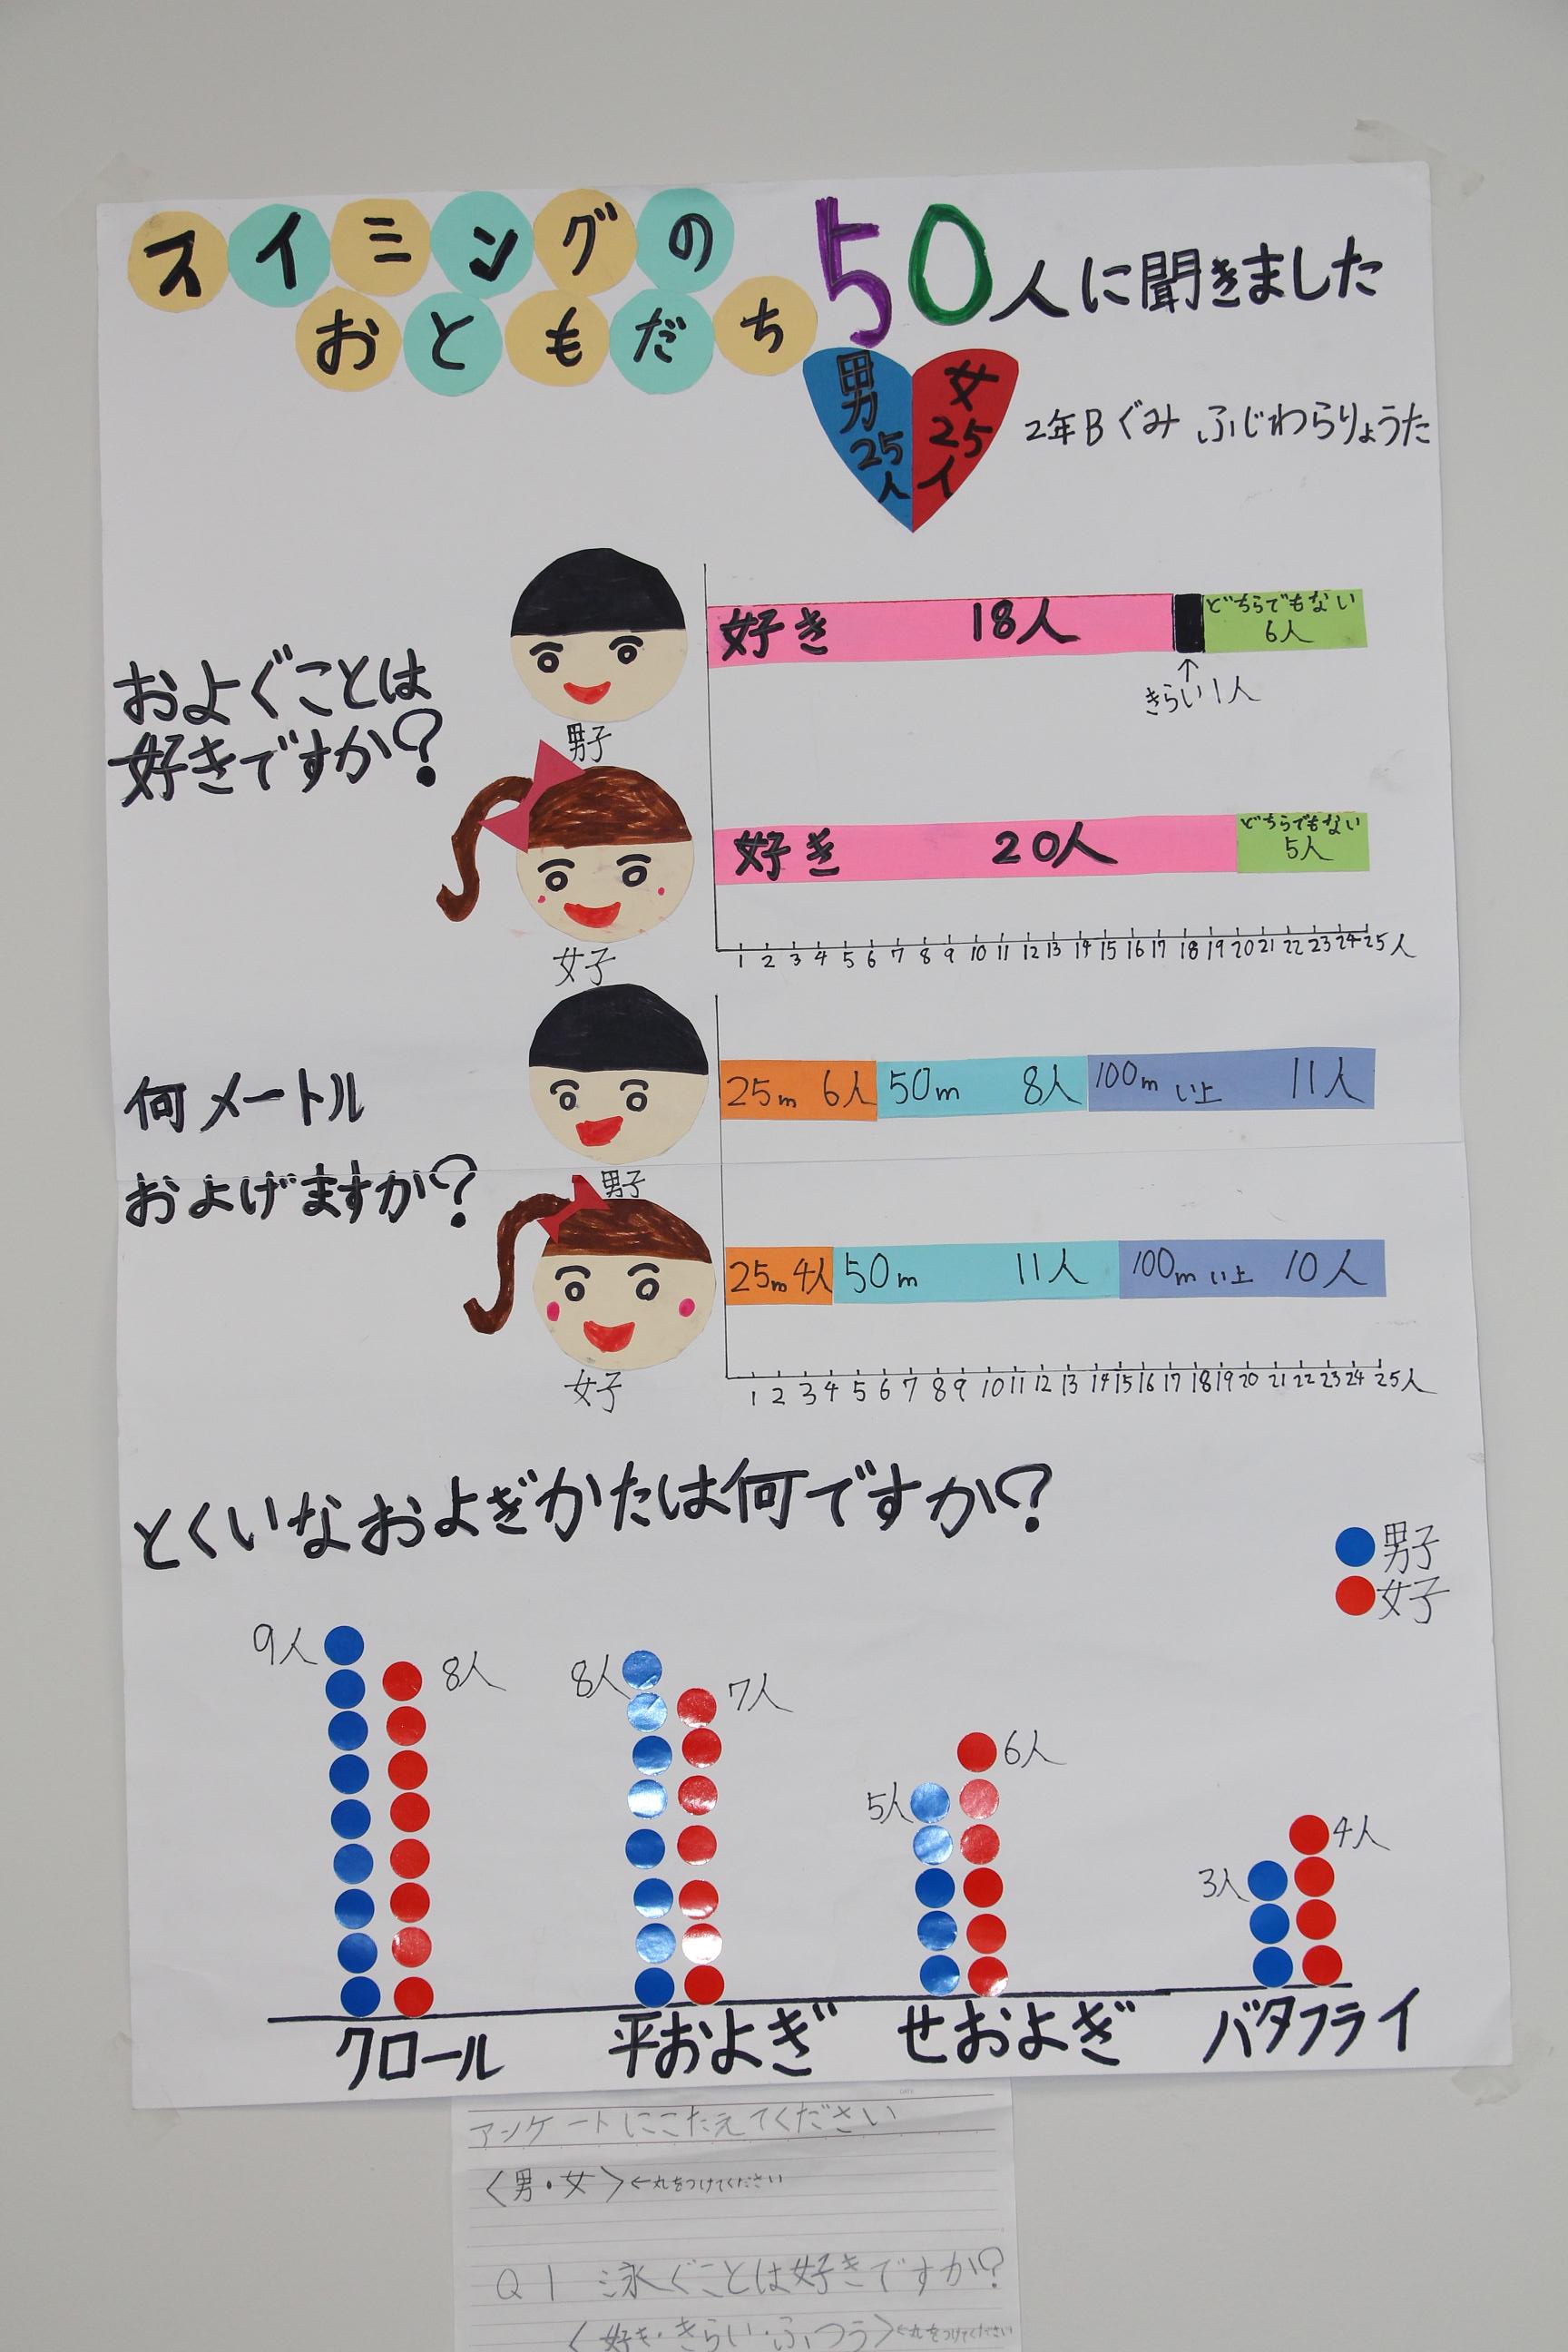 スイミングの
おともだち
50人に聞きました
男25人
女25人
2年Bぐみ ふじわらりょうた
およぐことは
好きですか?
男子
好き 18人
どちらでもない
6人
↑
きらい1人
女子
好き 20人
どちらでもない
5人
1 2 3 4 5 6 7 8 9 10 11 12 13 14 15 16 17 18 19 20 21 22 23 24 25人
何メートル
およげますか?
男子
25m 6人 50m 8人 100m い上 11人
女子
25m 4人 50m 11人 100m い上 10人
1 2 3 4 5 6 7 8 9 10 11 12 13 14 15 16 17 18 19 20 21 22 23 24 25人
とくいなおよぎかたは何ですか?
男子
女子
9人 8人 8人 7人
5人 6人
3人 4人
クロール 平およぎ せおよぎ バタフライ
アンケートにこたえてください
〈男・女〉←丸をつけてください
Q1 泳ぐことは好きですか?
〈好き・きらい・ふつう〉←丸をつけてください